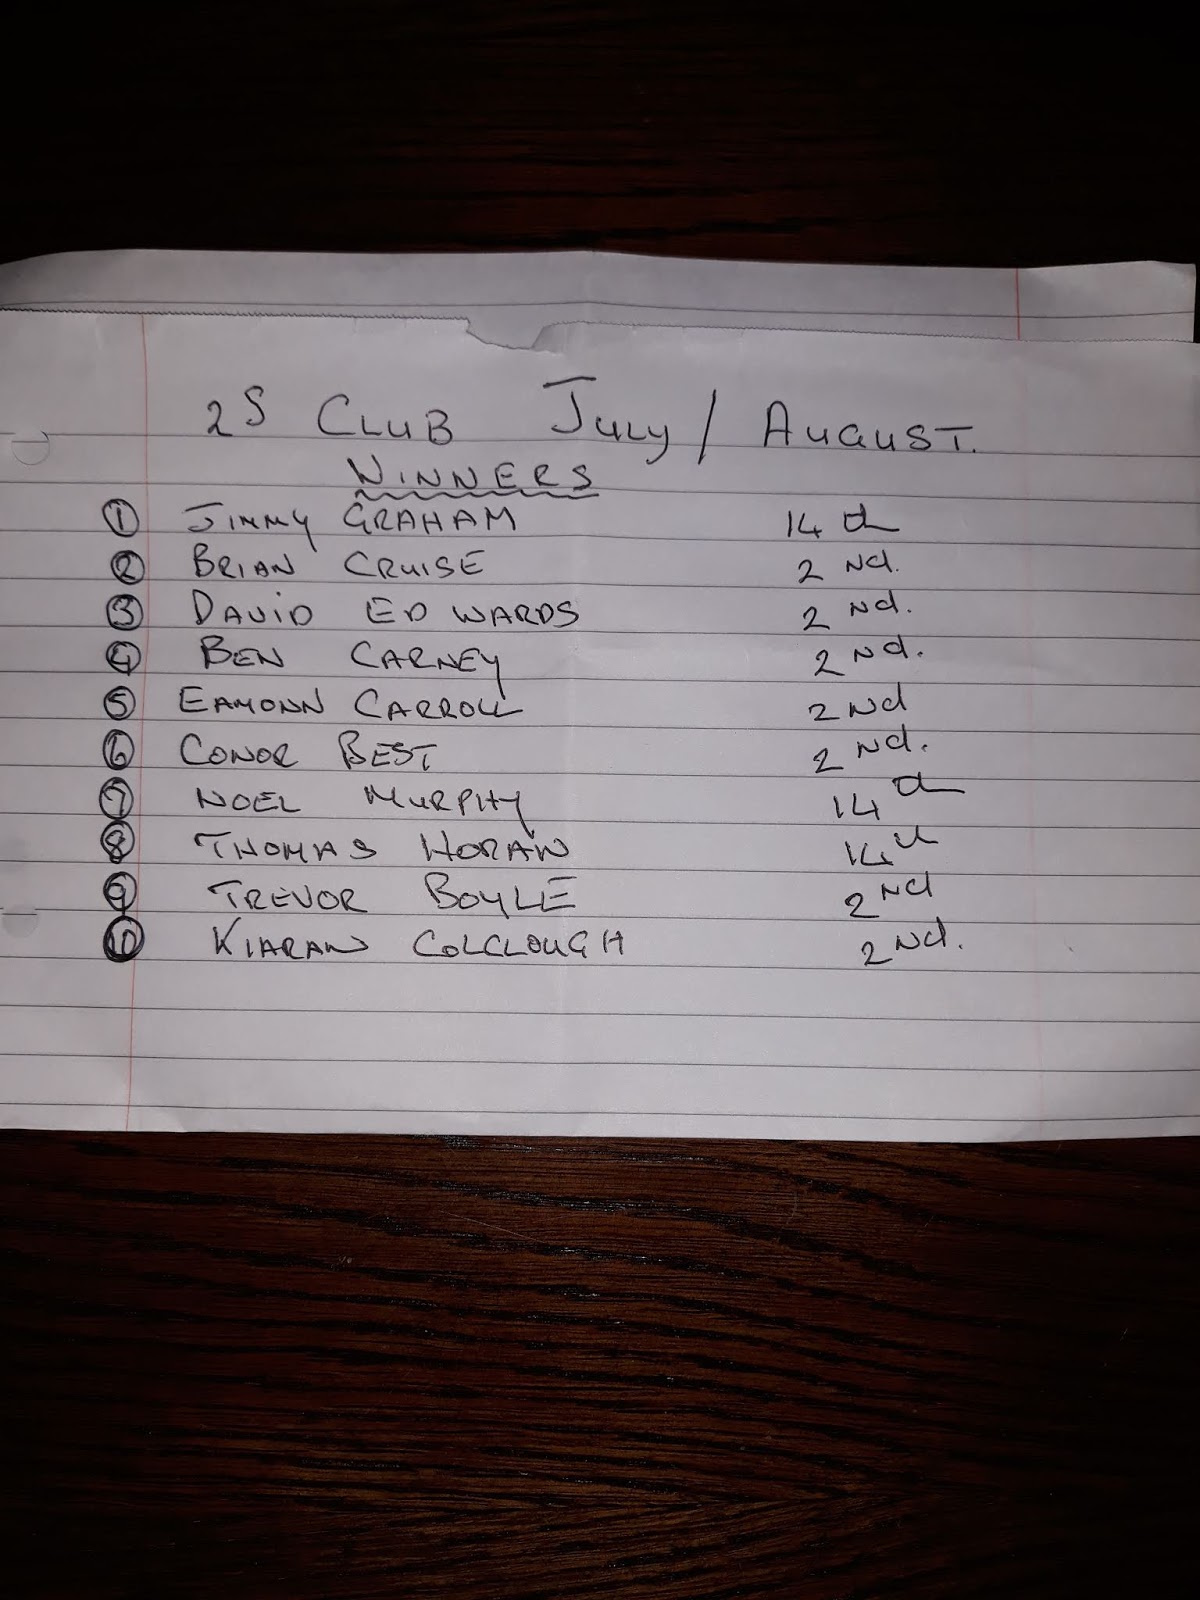 2S CLUB JULY / AUGUST.
WINNERS
1 JIMMY GRAHAM 14th
2 BRIAN CRUISE 2Nd.
3 DAVID EDWARDS 2Nd.
4 BEN CARNEY 2Nd.
5 EAMONN CARROLL 2Nd
6 CONOR BEST 2Nd.
7 NOEL MURPHY 14th
8 THOMAS HORAN 14th
9 TREVOR BOYLE 2Nd
10 KIARAN COLCLOUGH 2Nd.